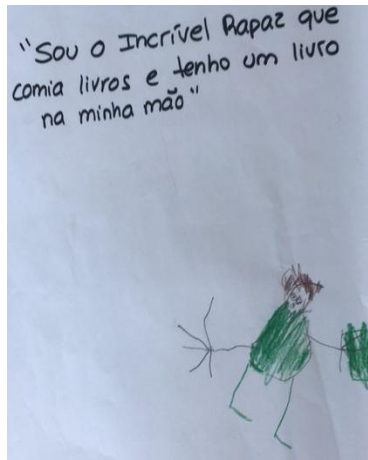 "Sou o Incrível Rapaz que
comia livros e tenho um livro
na minha mão"